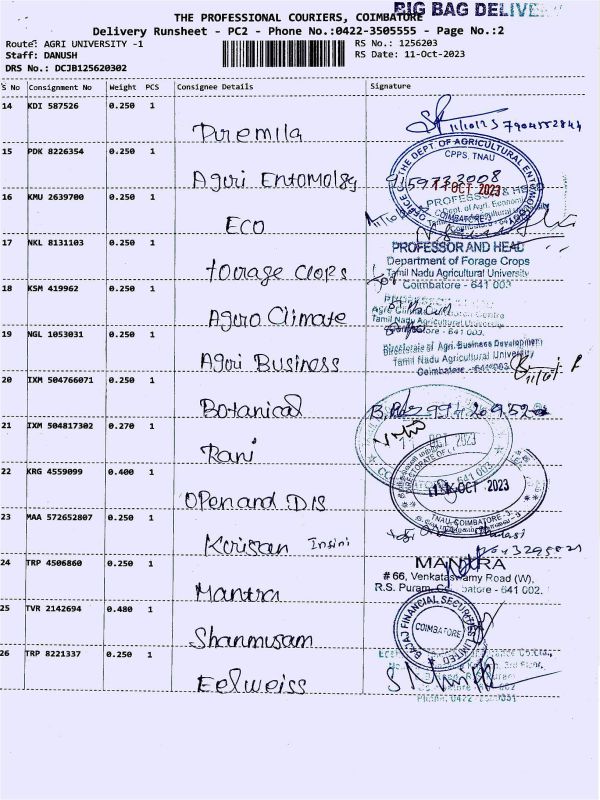 BIG BAG DELIVE
THE PROFESSIONAL COURIERS, COIMBATORE
Delivery Runsheet - PC2 - Phone No.:0422-3505555 - Page No.:2
Route: AGRI UNIVERSITY -1
RS No.: 1256203
Staff: DANUSH
RS Date: 11-Oct-2023
DRS No.: DCJB125620302
S No Consignment No Weight PCS Consignee Details Signature
14 KDI 587526 0.250 1
11/10/23 7904552844
Piremila
15 PDK 8226354 0.250 1
OFFICE OF THE DEPT OF AGRICULTURAL ENTOMOLOGY
CPPS, TNAU
COIMBATORE-3
Agri Entomolgy
11 OCT 2023
16 KMU 2639700 0.250 1
PROFESSOR & HEAD
Dept. of Agri. Economics
ECO
17 NKL 8131103 0.250 1
PROFESSOR AND HEAD
Department of Forage Crops
Tamil Nadu Agricultural University
Coimbatore - 641 003
forage crops
18 KSM 419962 0.250 1
Agro Climate Centre
Tamil Nadu Agricultural University
Coimbatore - 641 003.
Agro Climate
19 NGL 1053031 0.250 1
Directorate of Agri. Business Development
Tamil Nadu Agricultural University
Coimbatore - 641003
Agri Business
20 IXM 504766071 0.250 1
Botanical
21 IXM 504817302 0.270 1
OCT 2023
Rani
22 KRG 4559099 0.400 1
11 OCT 2023
TNAU, COIMBATORE - 3
Open and DIS
23 MAA 572652807 0.250 1
Krisan
24 TRP 4506860 0.250 1
MANTRA
# 66, Venkataswamy Road (W),
R.S. Puram, Coimbatore - 641 002.
Mantra
25 TVR 2142694 0.480 1
BAJAJ FINANCIAL SECURITIES LIMITED
COIMBATORE
Shanmugam
26 TRP 8221337 0.250 1
3rd Floor,
Eelweiss